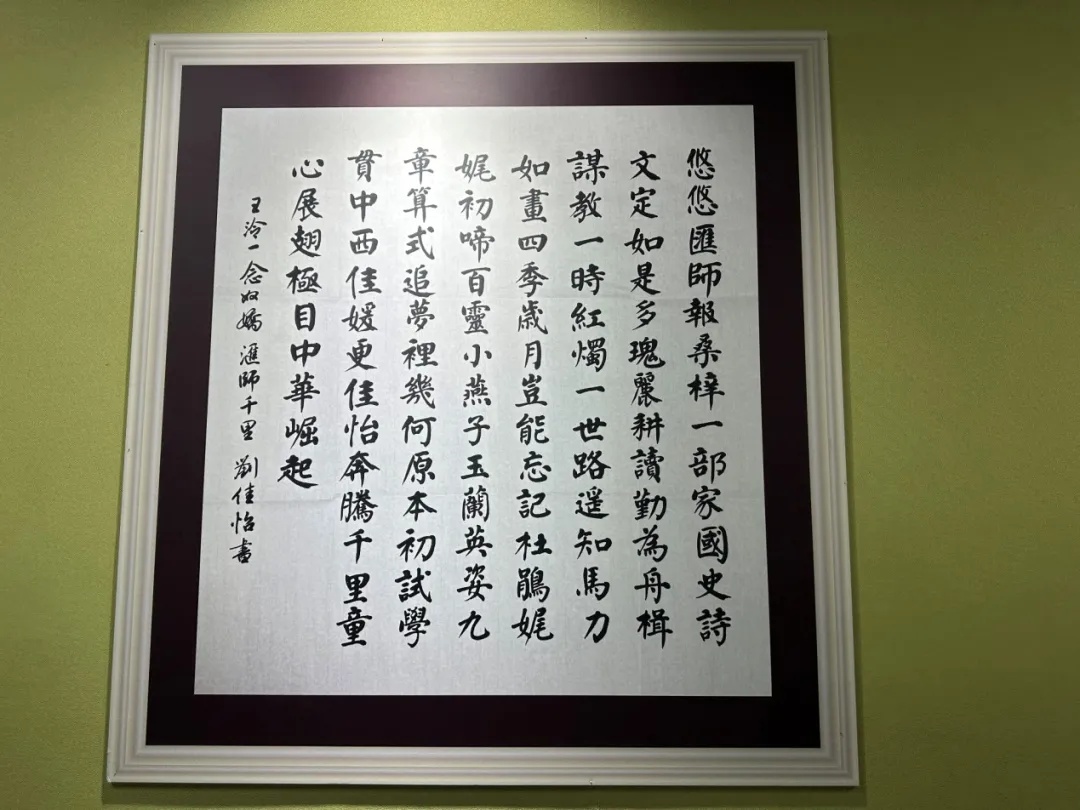 悠悠匯師報桑梓一部家國史詩
文定如是多瑰麗耕讀勤為舟楫
謀教一時紅燭一世路遥知馬力
如畫四季歲月豈能忘記杜鵑娓
娓初啼百靈小燕子玉蘭英姿九
章算式追夢裡幾何原本初試學
貫中西佳媛更佳怡奔騰千里童
心展翅極目中華崛起
王泠一念奴嬌滙師千里劉佳怡書